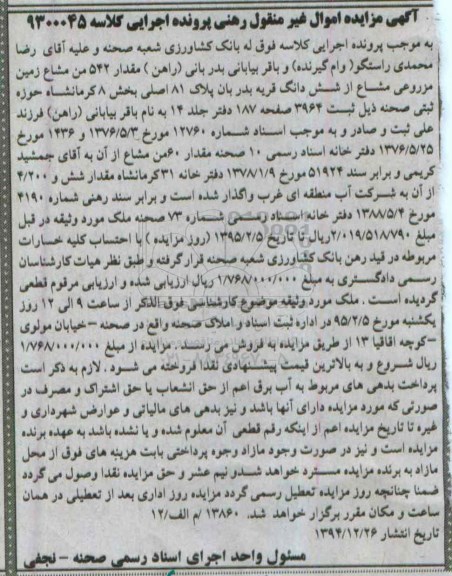 آگهی مزایده اموال غیر منقول رهنی پرونده اجرایی کلاسه ۹۳۰۰۰۴۵
به موجب پرونده اجرایی کلاسه فوق له بانک کشاورزی شعبه صحنه و علیه آقای رضا
محمدی راستگو( وام گیرنده) و باقر بیابانی بدر بانی (راهن ) مقدار ۵۴۲ من مشاع زمین
مزروعی مشاع از شش دانگ قریه بدر بان پلاک ۸۱ اصلی بخش ۸ کرمانشاه حوزه
ثبتی صحنه ذیل ثبت ۳۹۶۴ صفحه ۱۸۷ دفتر جلد ۱۴ به نام باقر بیابانی (راهن) فرزند
علی ثبت و صادر و به موجب اسناد شماره ۱۲۷۶۰ مورخ ۱۳۷۶/۵/۳ و ۱۴۳۶ مورخ
۱۳۷۶/۵/۲۵ دفتر خانه اسناد رسمی ۱۰ صحنه مقدار ۶۰من مشاع از آن به آقای جمشید
کریمی و برابر سند ۵۱۹۲۴ مورخ ۱۳۷۸/۱/۹ دفتر خانه ۳۱کرمانشاه مقدار شش و ۴/۲۰۰
از آن به شرکت آب منطقه ای غرب واگذار شده است و برابر سند رهنی شماره ۴۱۹۰
مورخ ۱۳۸۸/۵/۴ دفتر خانه اسناد رسمی شماره ۷۳ صحنه ملک مورد وثیقه در قبل
مبلغ ۲/۰۱۹/۵۱۸۷۹۰ریال تا تاریخ ۱۳۹۵/۲/۵ (روز مزایده ) با احتساب کلیه خسارات
مربوطه در قید رهن بانک کشاورزی شعبه صحنه قرار گرفته و طبق نظر هیات کارشناسان
رسمی دادگستری به مبلغ ۱/۷۶۸/۰۰۰/۰۰۰ ریال ارزیابی شده و ارزیابی مرقوم قطعی
گردیده است . ملک مورد وثیقه موضوع کارشناسی فوق الذکر از ساعت ۹ الی ۱۲ روز
یکشنبه مورخ ۹۵/۲/۵ در اداره ثبت اسناد و املاک صحنه واقع در صحنه –خیابان مولوی
–کوچه اقاقیا ۱۳ از طریق مزایده به فروش می رسد . مزایده از مبلغ ۱/۷۶۸/۰۰۰/۰۰۰
ریال شروع و به بالاترین قیمت پیشنهادی نقدا فروخته می شود . لازم به ذکر است
پرداخت بدهی های مربوط به آب برق اعم از حق انشعاب یا حق اشتراک و مصرف در
صورتی که مورد مزایده دارای آنها باشد و نیز بدهی های مالیاتی و عوارض شهرداری و
غیره تا تاریخ مزایده اعم از اینکه رقم قطعی آن معلوم شده و یا نشده باشد به عهده برنده
مزایده است و نیز در صورت وجود مازاد وجوه پرداختی بابت هزینه های فوق از محل
مازاد به برنده مزایده مسترد خواهد شدو نیم عشر و حق مزایده نقدا وصول می گردد
ضمنا چنانچه روز مزایده تعطیل رسمی گردد مزایده روز اداری بعد از تعطیلی در همان
ساعت و مکان مقرر برگزار خواهد شد. ۱۳۸۶۰ /م الف/۱۲
تاریخ انتشار ۱۳۹۴/۱۲/۲۶
مسئول واحد اجرای اسناد رسمی صحنه – نجفی